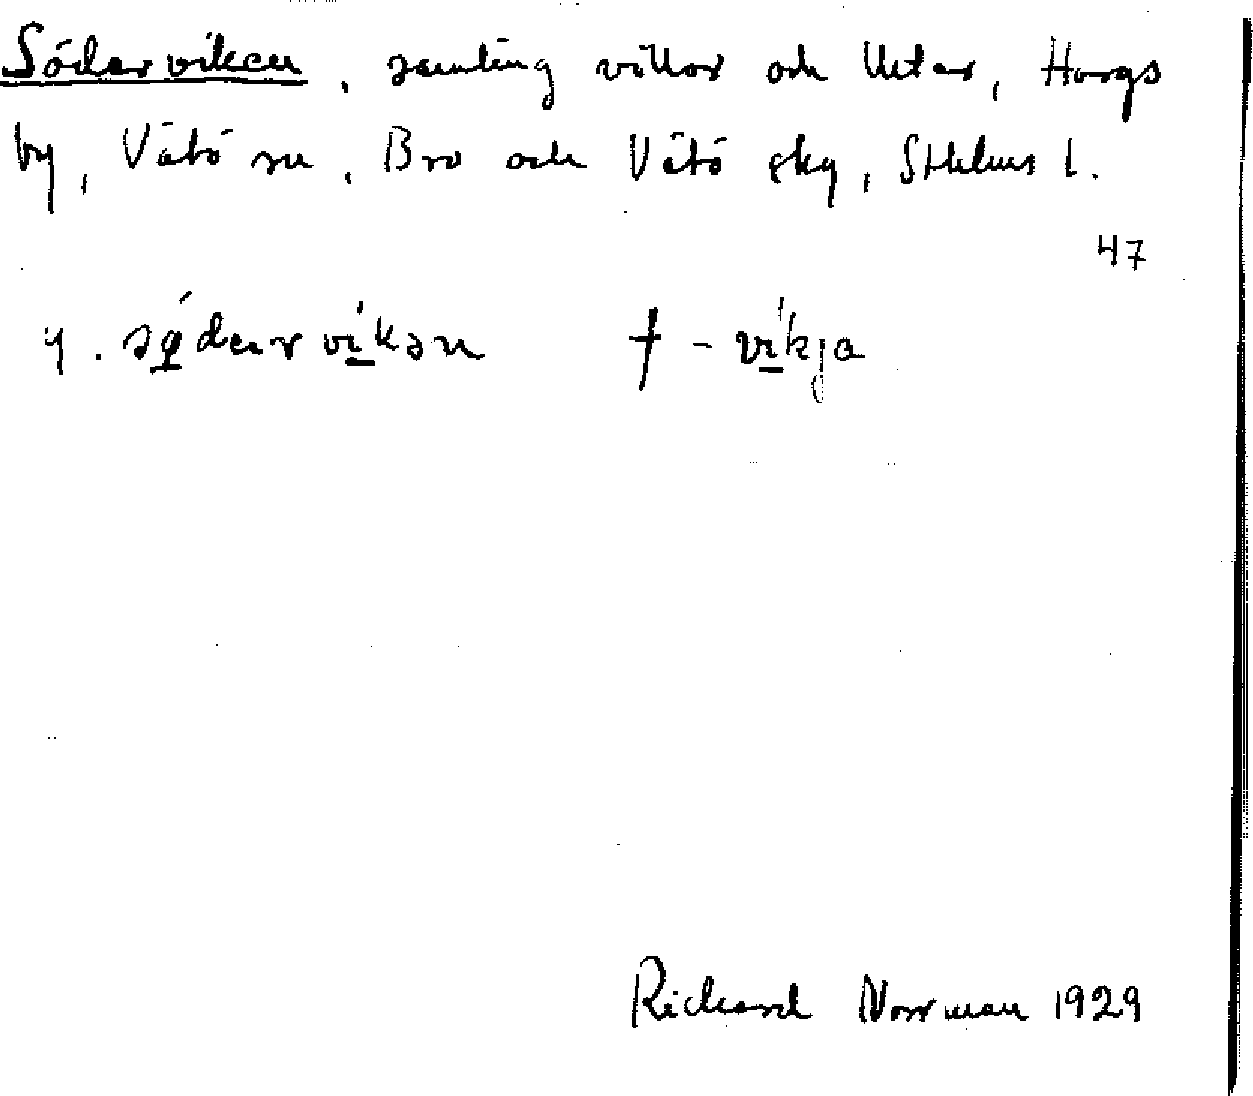 Söderviken, samling villor och
by, Vätö sn, Bro och Vätö skg, Sthlms l.
47
y. södərvikən † - vikja
Rickard Norrman 1929